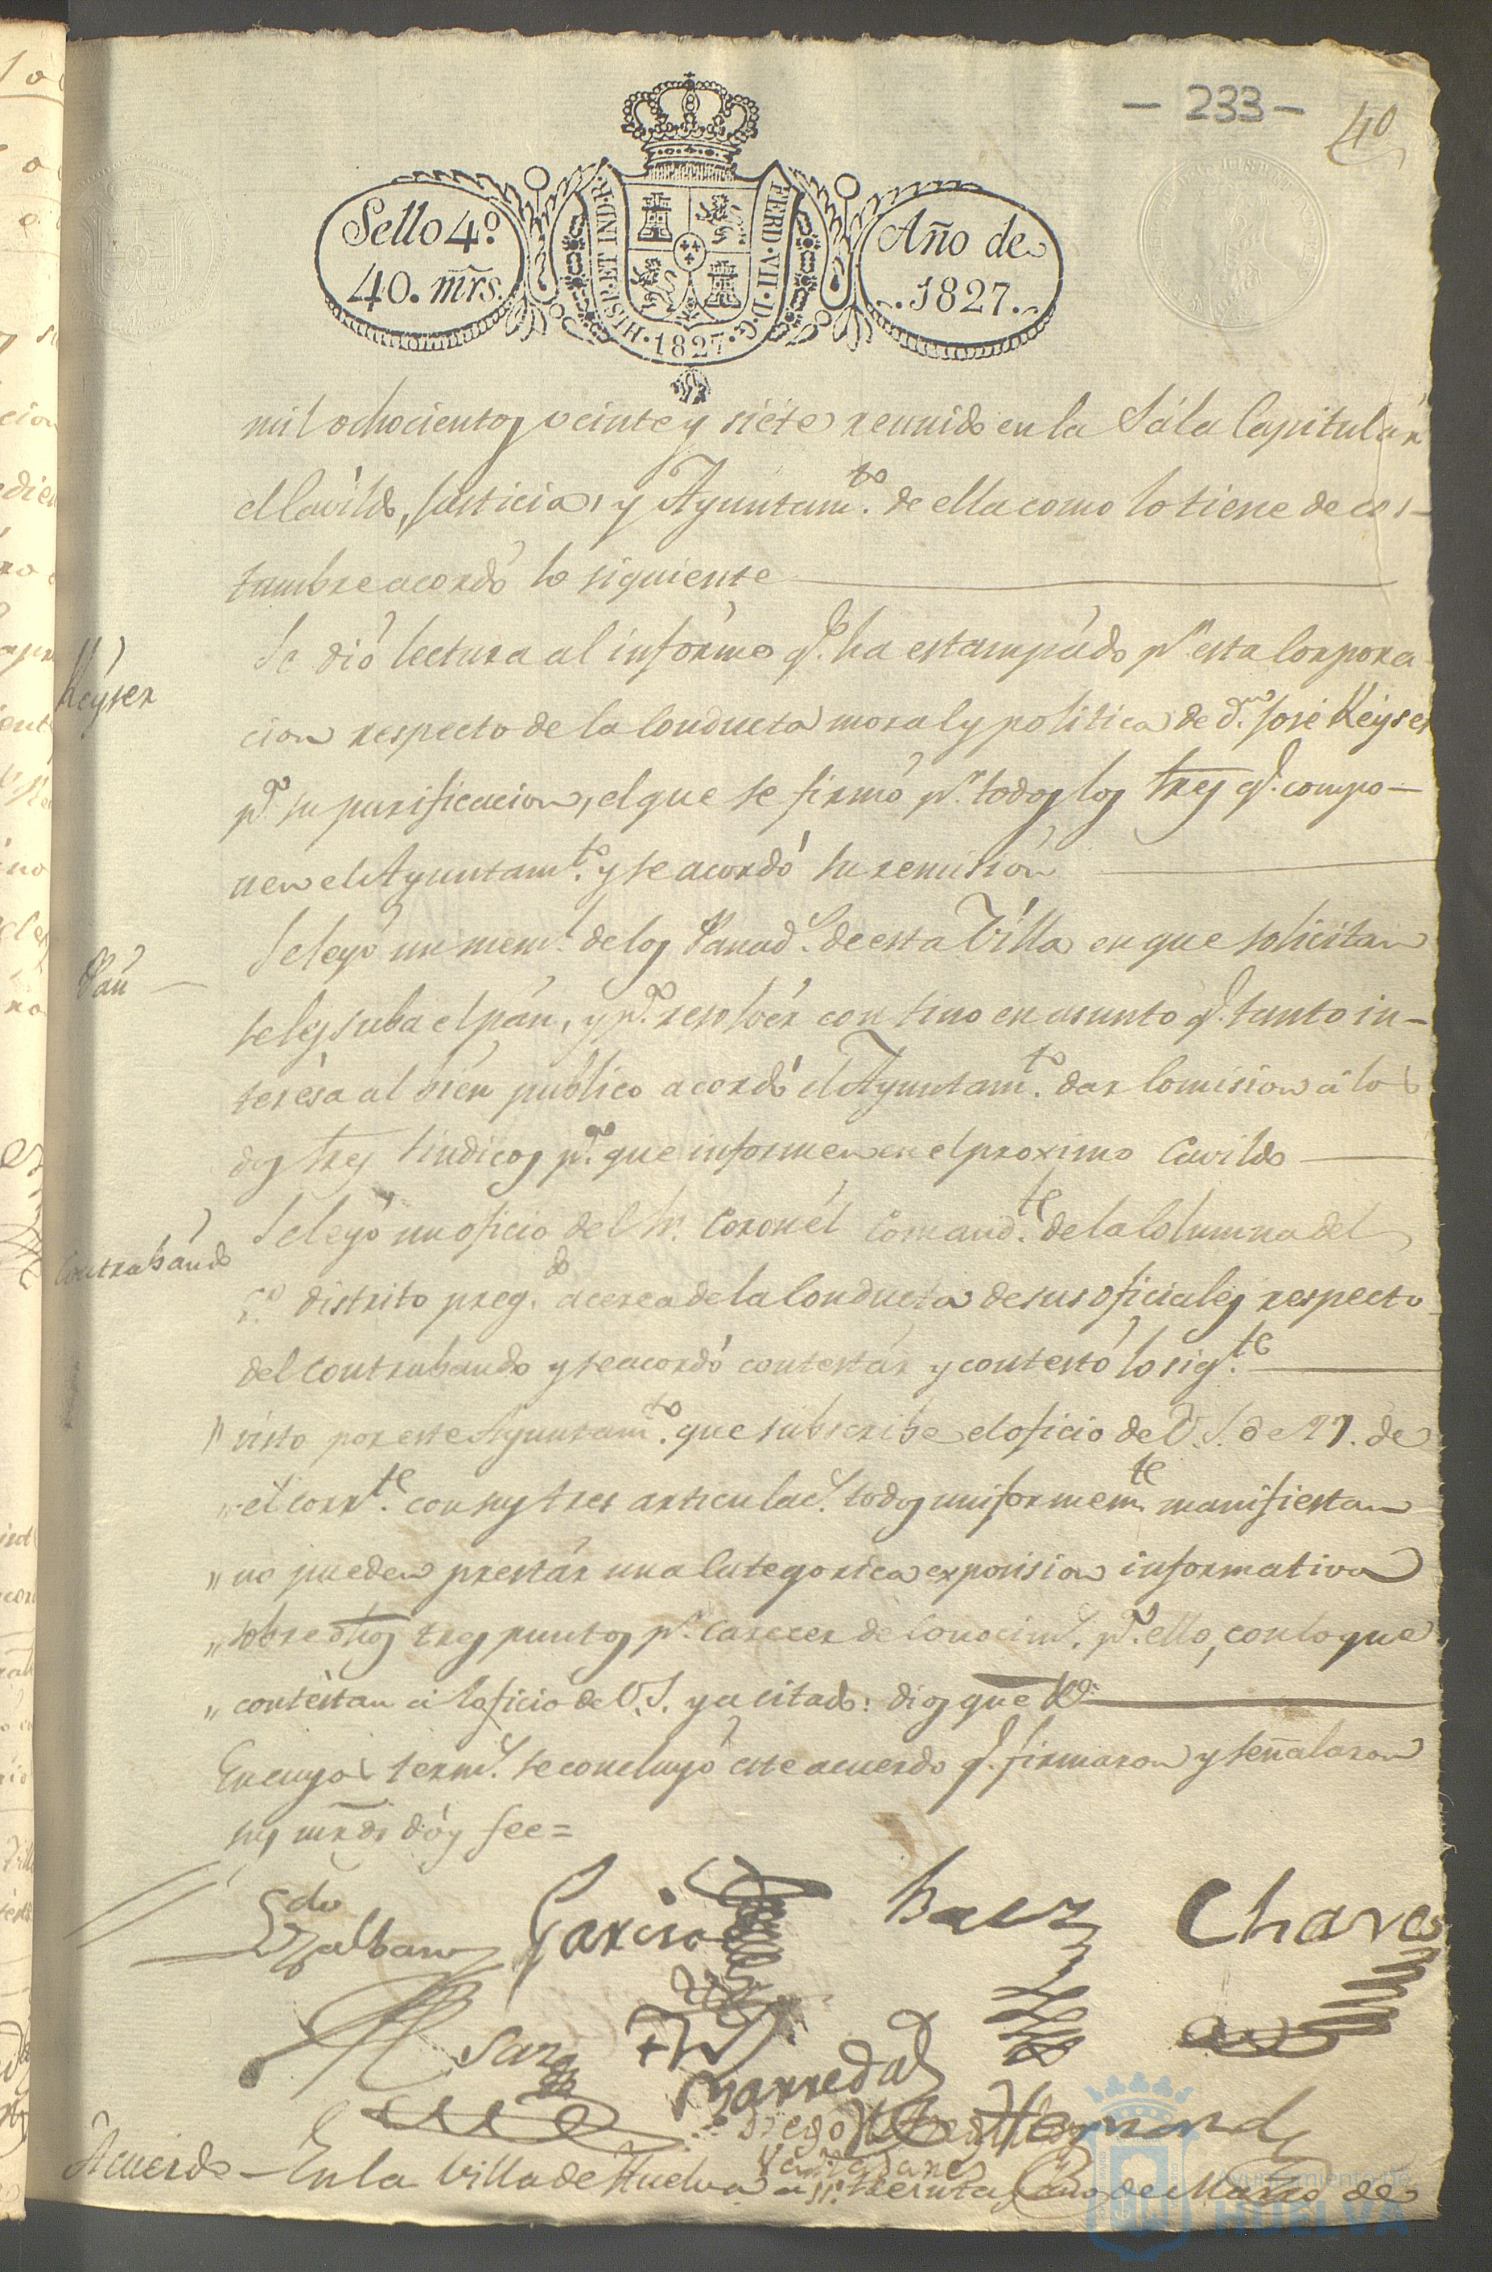 - 233 -
40
Sello 4º
40. mrs.
HISP. ET IND. R.
FERD. VII. D. G.
1827
Año de
1827.
mil ochocientos veinte y siete reunido en la Sála Capitulár
el Cavildo, Justicia, y Ayuntamto. de ella como lo tiene de cos-
tumbre acordó lo siguiente
Keyser
Se dió lectura al infórme q.e ha estampádo pr. esta Corpora-
cion respecto de la conducta moral y politica de dn. José Keyser
pa. su purificacion, el que se firmó pr. todos los tres q.e compo-
nen el Ayuntamto. y se acordó su remisión
Pan
Se leyó un meml. de los Panads. de esta Villa en que solicitan
se les suba el pán, y pa. resolvér con tino en asunto q.e tanto in-
terésa al bien público acordó el Ayuntamto. dar Comision á los
dos tres sindicos pa. que informen en el proximo Cavildo
Contrabándo
Se leyó un oficio del Sr. Coronél Comandte. de la Columna del
distrito pregdo. acerca de la conducta de sus oficiales respecto
del contrabando y se acordó contestár y contestó lo sigte.
" visto por este Ayuntamto. que subscribe el oficio de V.S. de 27. de
" el corrte. con sus tres articulacs. todos uniformemte. manifiestan
" no pueden prestár una Categorica exposision informativa
" sobre dhos tres puntos pr. carecer de conocims. pa. ello, con lo que
" contéstan á el oficio de V.S. ya citado: dios que &
En cuyos terms. se concluyó este acuerdo q.e firmaron y señalaron
sus mrds. dóy fee=
Galban
Garcia
Baez
Chaves
Sanz
Barreda
Diego
Acuerdo - En la Villa de Huelva á treinta de Marzo de
Ayuntamiento de
HUELVA